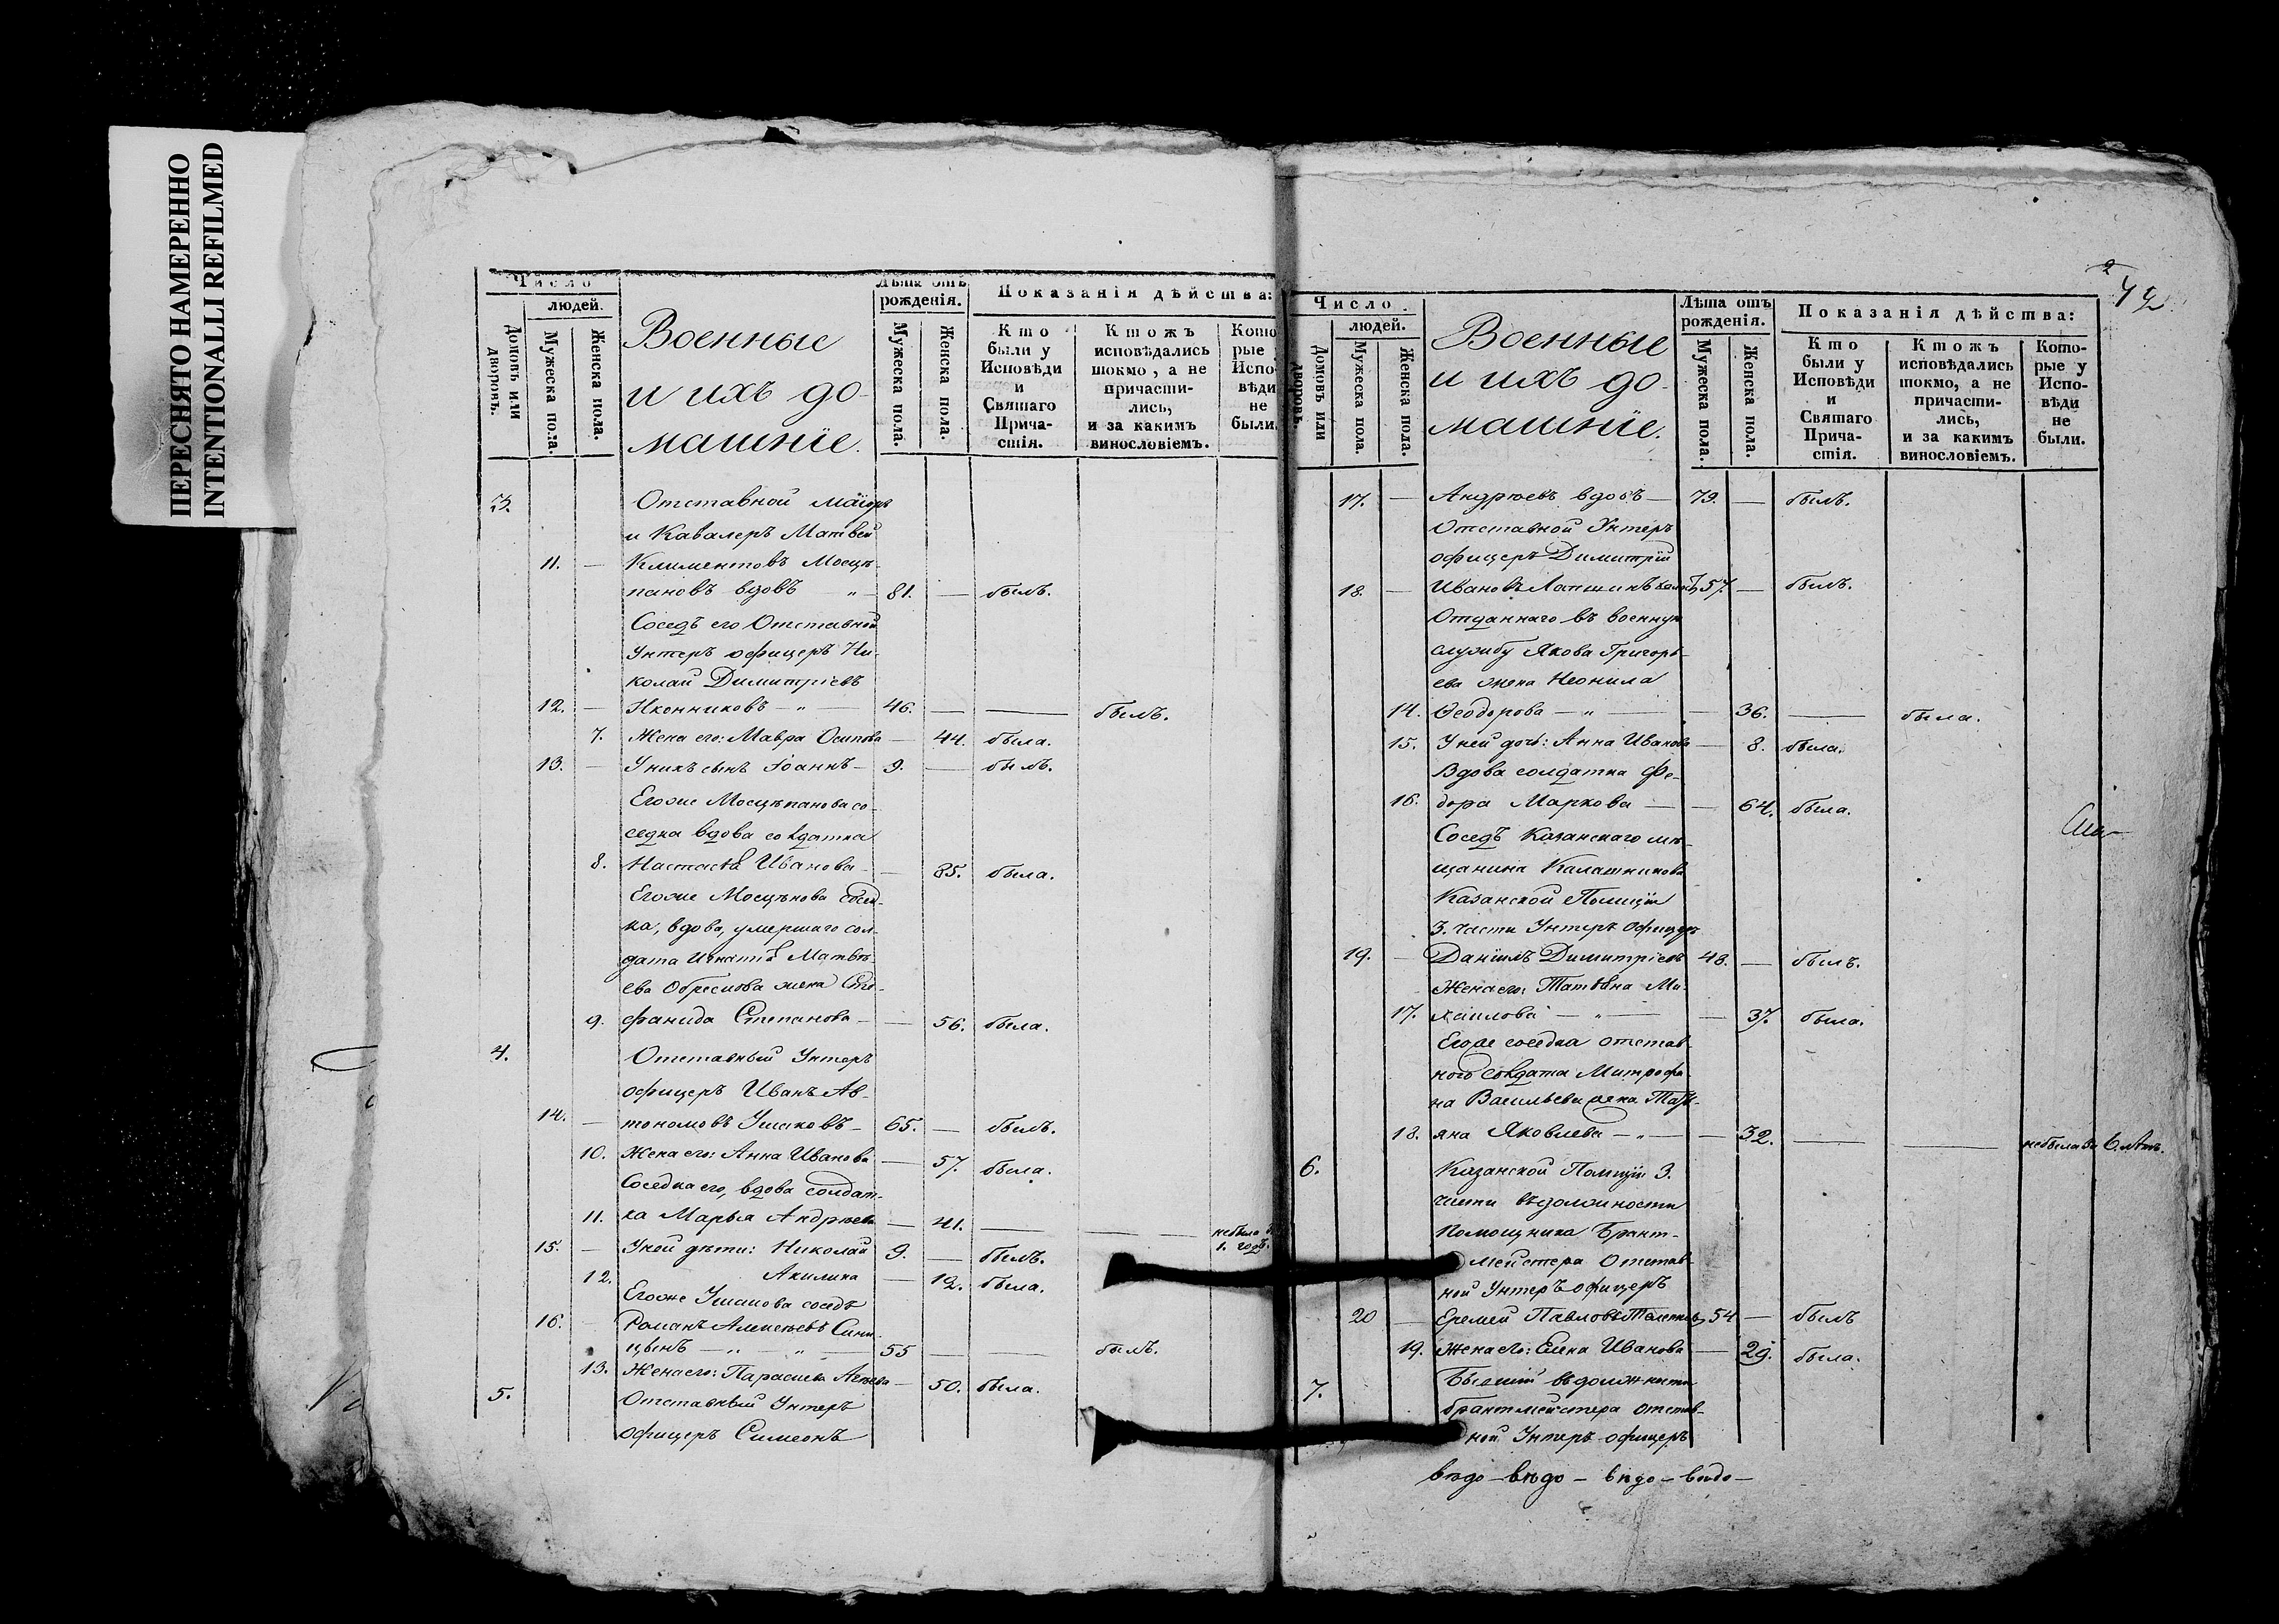 ПЕРЕСНЯТО НАМЕРЕННО
INTENTIONALLI REFILMED
Число
людей.
Домовъ или дворовъ.
Мужеска пола.
Женска пола.
Военные
и ихъ до-
машніе.
Лѣта отъ
рожденія.
Мужеска пола.
Женска пола.
Показанія дѣйства:
Кто
были у
Исповѣди
и
Святаго
Прича-
стія.
Ктожъ
исповѣдались
токмо, а не
причасти-
лись,
и за какимъ
винословіемъ.
Кото
рые
Испо-
вѣди
не
были.
3. Отставной маіоръ
и Кавалеръ Матвей
11. — Климентовъ Мосцѣ-
пановъ вдовъ — " — 81. — былъ.
Соседъ его Отставной
Унтеръ офицеръ Ни-
колай Димитріевъ
12. — Иконниковъ — " — 46. — — былъ.
7. Жена его: Мавра Осипова — 44. была.
13. — У нихъ сынъ Іоаннъ — 9. — былъ.
Егоже Мосцѣпанова со-
седка вдова солдатка
8. Настасья Иванова — — 85. была.
Егоже Мосцѣнова сосед-
ка, вдова, умершаго сол-
дата Игнатія Матвѣ-
ева жена Сте-
9. фанида Степанова — — 56. была.
4. Отставный Унтеръ
офицеръ Иванъ Ав-
14. — тономовъ Ушаковъ — 65. — былъ.
10. Жена его: Анна Иванова — 57. была.
Соседка его, вдова солдат-
11. ка Марья Андреева — 41. — — небыла
1. годъ.
15. — У ней дѣти: Николай 9. — былъ.
12. Акилина — 12. была.
Егоже Ушакова соседъ
16. — Романъ Алексѣевъ Сини-
цынъ — " — " — 55 — — былъ.
13. Жена его: Параскева — 50. была.
5. Отставный Унтеръ
офицеръ Симеонъ
2
Число.
людей.
Домовъ или дворовъ.
Мужеска пола.
Женска пола.
Военные
и ихъ до-
машніе.
Лѣта отъ
рожденія.
Мужеска пола.
Женска пола.
Показанія дѣйства:
Кто
были у
Исповѣди
и
Святаго
Прича-
стія.
Ктожъ
исповѣдались
токмо, а не
причасти-
лись,
и за какимъ
винословіемъ.
Кото-
рые у
Испо-
вѣди
не
были.
17. — Андреевъ вдовъ — 79. — былъ.
Отставной Унтеръ
офицеръ Димитрій
18. — Ивановъ Лапшинъ 57. — былъ.
Отданнаго въ военную
службу Якова Григорь-
ева жена Неонила
14. Ѳеодорова — " — — 36. — была.
15. У ней дочь: Анна Иванова — 8. была.
Вдова солдатка Ѳе-
16. дора Маркова — — 64. была.
Соседъ Казанскаго мѣ-
щанина Калашникова
Казанской Полиціи
3. части Унтеръ офицеръ
19. — Даніилъ Димитріевъ 48. — былъ.
Жена его: Татьяна Ми-
17. хаилова — " — — 37. была.
Егоже соседка отстав-
ного солдата Митрофа-
на Васильева жена Тать-
18. яна Яковлева — " — — 32. — — небыла 6. лѣтъ.
6. Казанской Полиціи 3.
части въ должности
Помощника Брант-
мейстера Отстав-
ной Унтеръ офицеръ
20 — Еремей Павловъ 54 — былъ
19. Жена его: Елена Иванова — 29. была.
7. Бывшій въ должности
брантмейстера отстав-
ной Унтеръ офицеръ
вѣдо — вѣдо — вѣдо — вѣдо —